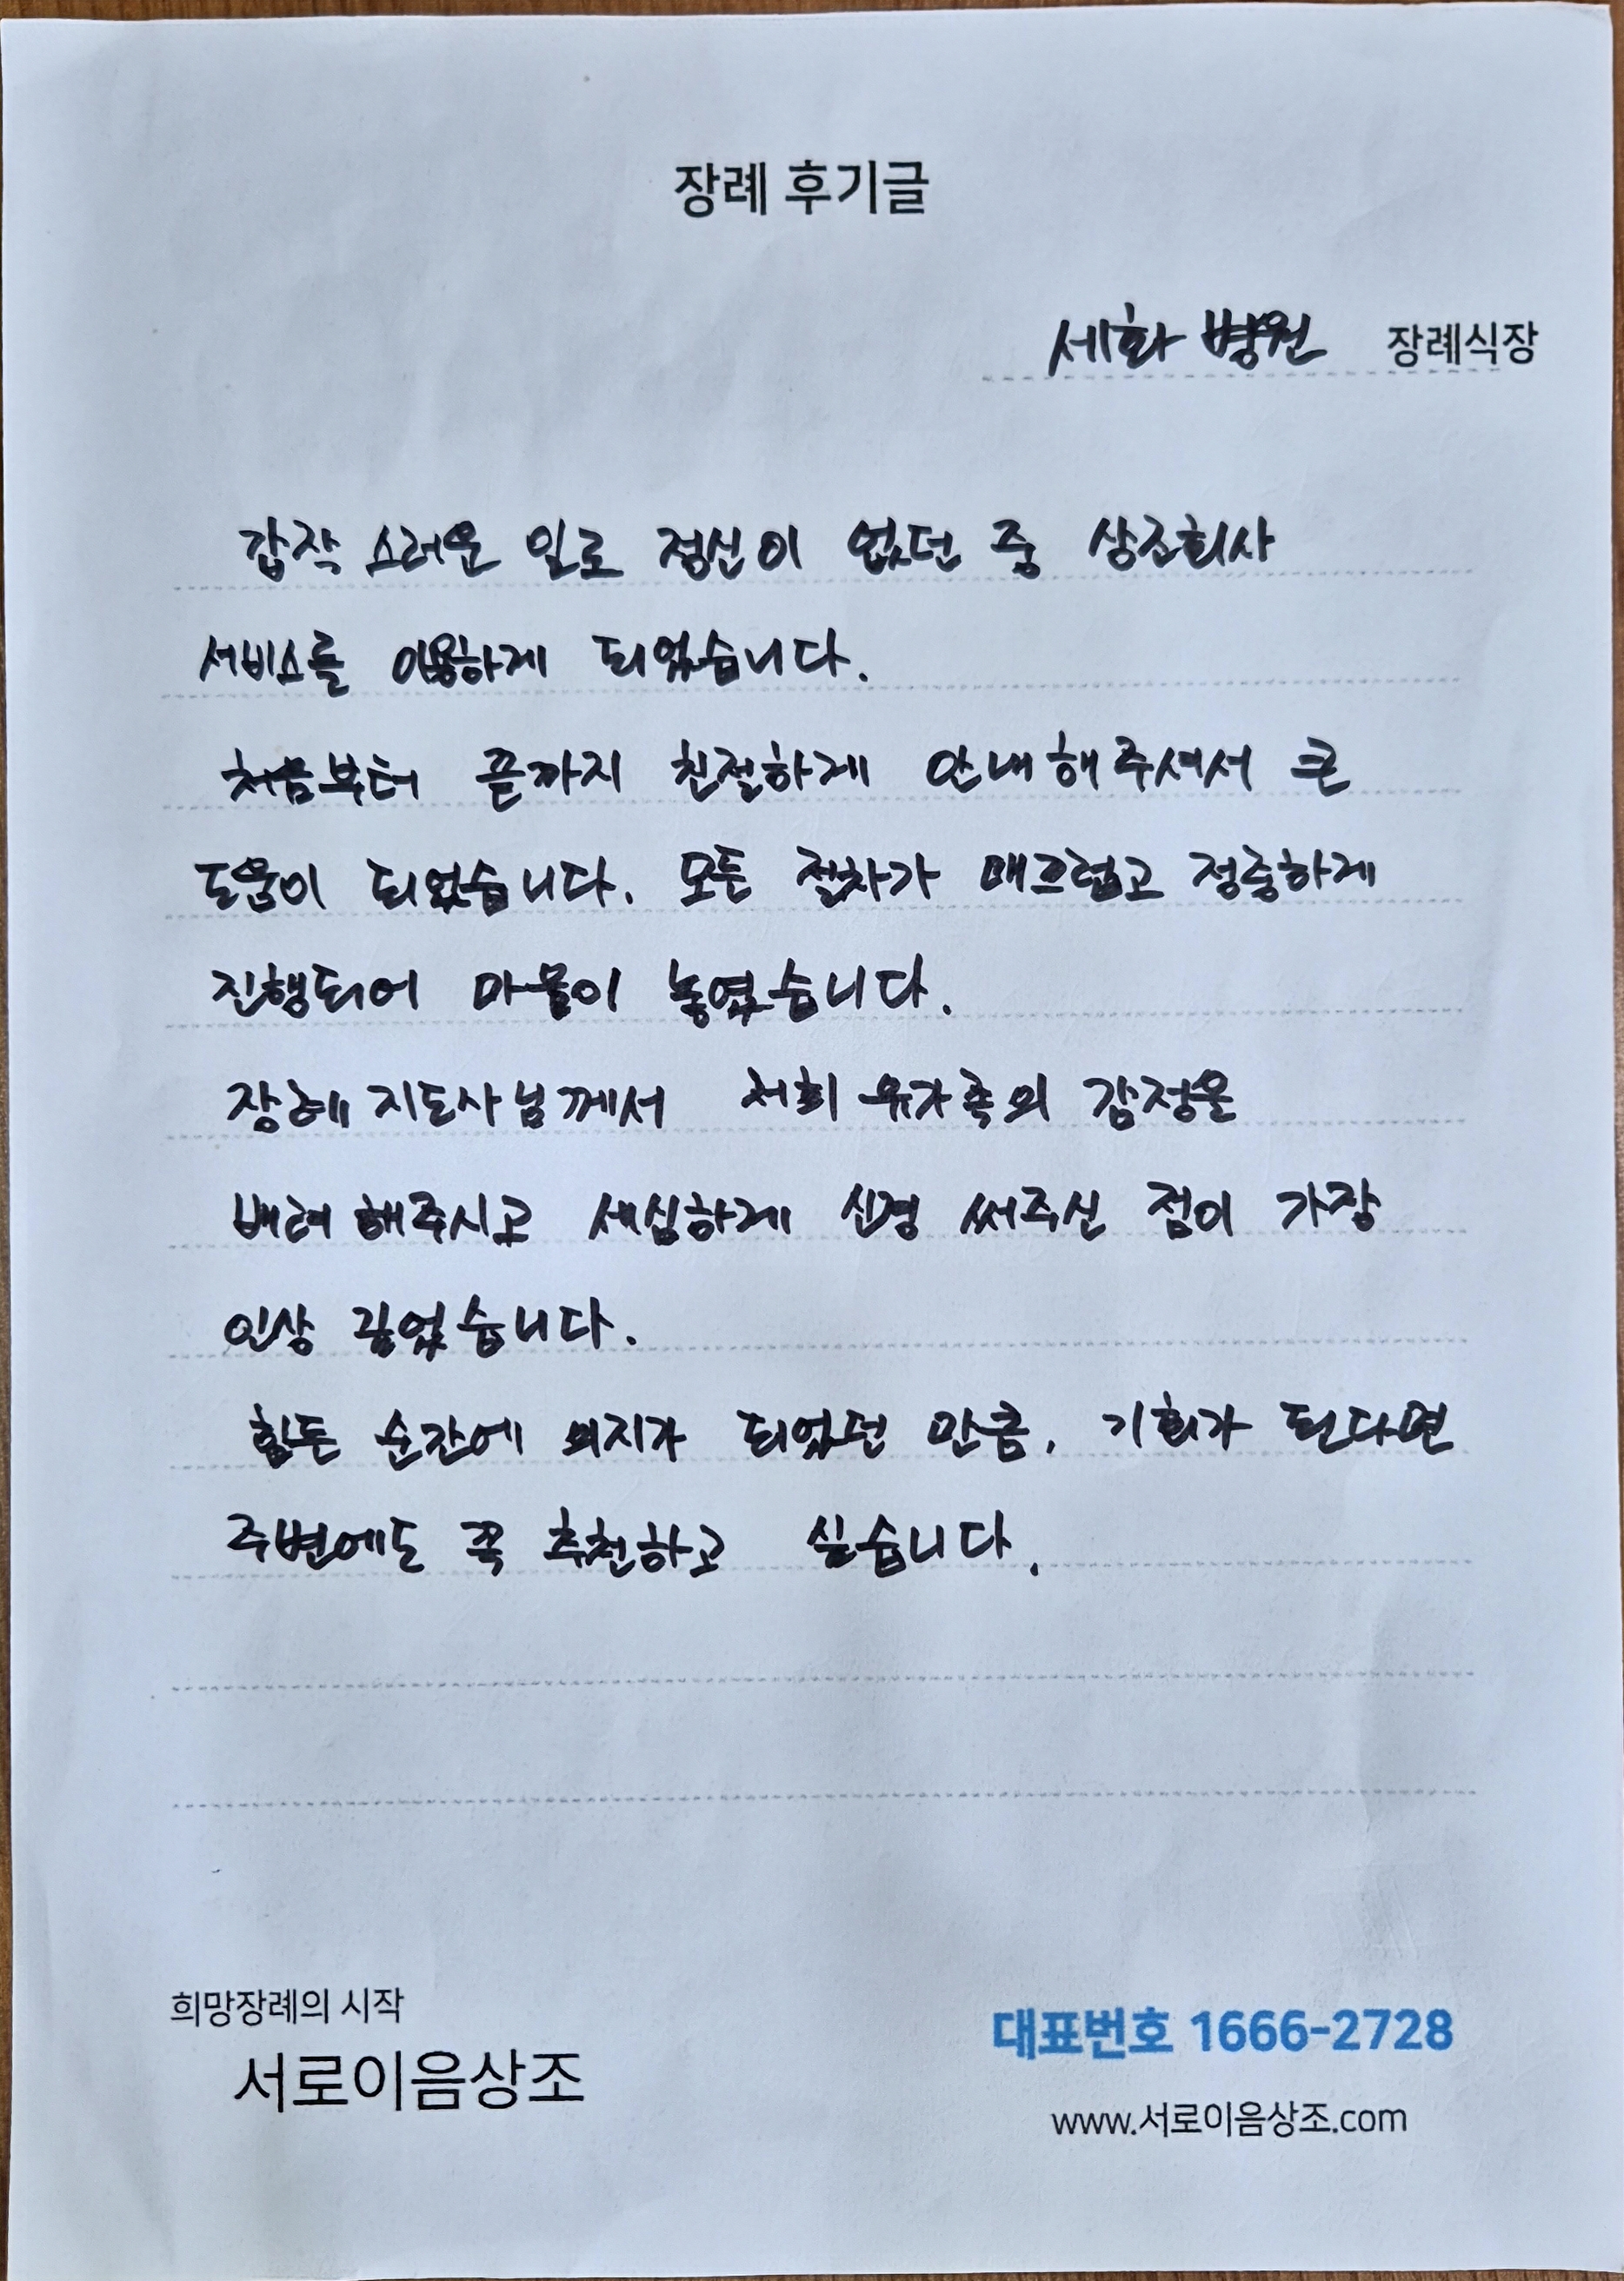 장례 후기글
세화 병원 장례식장
갑작 스러운 일로 정신이 없던 중 상조회사
서비스를 이용하게 되었습니다.
처음부터 끝까지 친절하게 안내해주셔서 큰
도움이 되었습니다. 모든 절차가 매끄럽고 정중하게
진행되어 마음이 놓였습니다.
장례 지도사님께서 저희 유가족의 감정을
배려 해주시고 세심하게 신경 써주신 점이 가장
인상 깊었습니다.
힘든 순간에 의지가 되었던 만큼, 기회가 된다면
주변에도 꼭 추천하고 싶습니다.
희망장례의 시작
서로이음상조
대표번호 1666-2728
www.서로이음상조.com